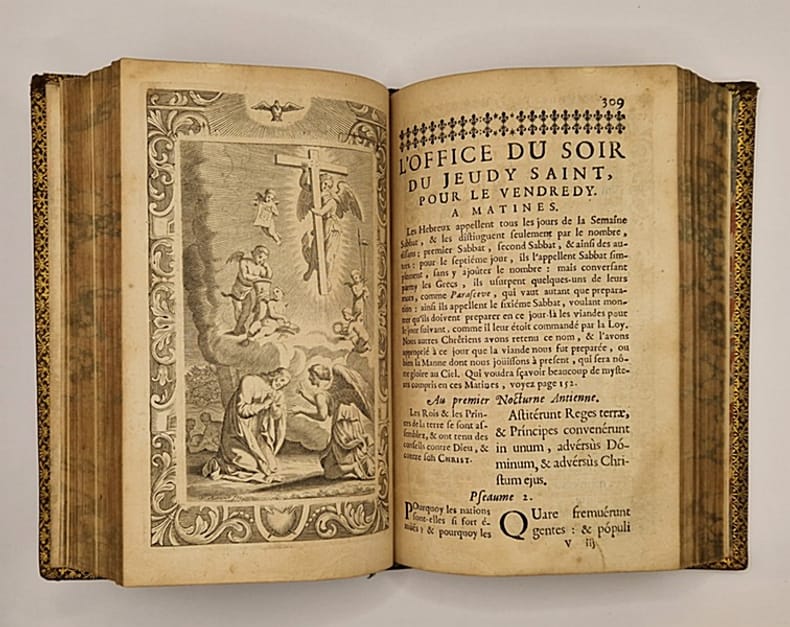 309
L'OFFICE DU SOIR
DU JEUDY SAINT,
POUR LE VENDREDY.
A MATINES.
Les Hebreux appellent tous les jours de la Semaine
Sabbat, & les distinguent seulement par le nombre,
disans; premier Sabbat, second Sabbat, & ainsi des au-
tres: pour le septiéme jour, ils l'appellent Sabbat sim-
plement, sans y ajoûter le nombre: mais conversant
parmy les Grecs, ils usurpent quelques-uns de leurs
mots, comme Parasceve, qui vaut autant que prepara-
tion: ainsi ils appellent le sixiéme Sabbat, voulant mon-
trer qu'ils doivent preparer en ce jour-là les viandes pour
le jour suivant, comme il leur étoit commandé par la Loy.
Nous autres Chrêtiens avons retenu ce nom, & l'avons
approprié à ce jour que la viande nous fut preparée, ou
bien la Manne dont nous joüissons à present, qui sera nô-
tre gloire au Ciel. Qui voudra sçavoir beaucoup de myste-
res compris en ces Matines, voyez page 152.
Au premier Nocturne Antienne.
Les Rois & les Prin-
ces de la terre se sont as-
semblez, & ont tenu des
conseils contre Dieu, &
contre son CHRIST.
Astitérunt Reges terræ,
& Príncipes convenérunt
in unum, advérsùs Dó-
minum, & advérsùs Chri-
stum ejus.
Pseaume 2.
Pourquoy les nations
sont-elles si fort é-
muës? & pourquoy les
Quare fremuérunt
gentes: & pópuli
V iij